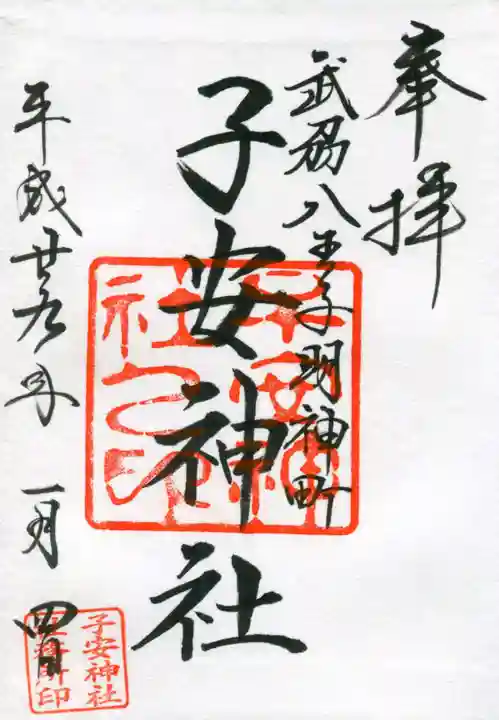 奉拝
武刕八王子明神町
子安神社
平成廿九年 一月 四日
子安神社
社之印
子安神社